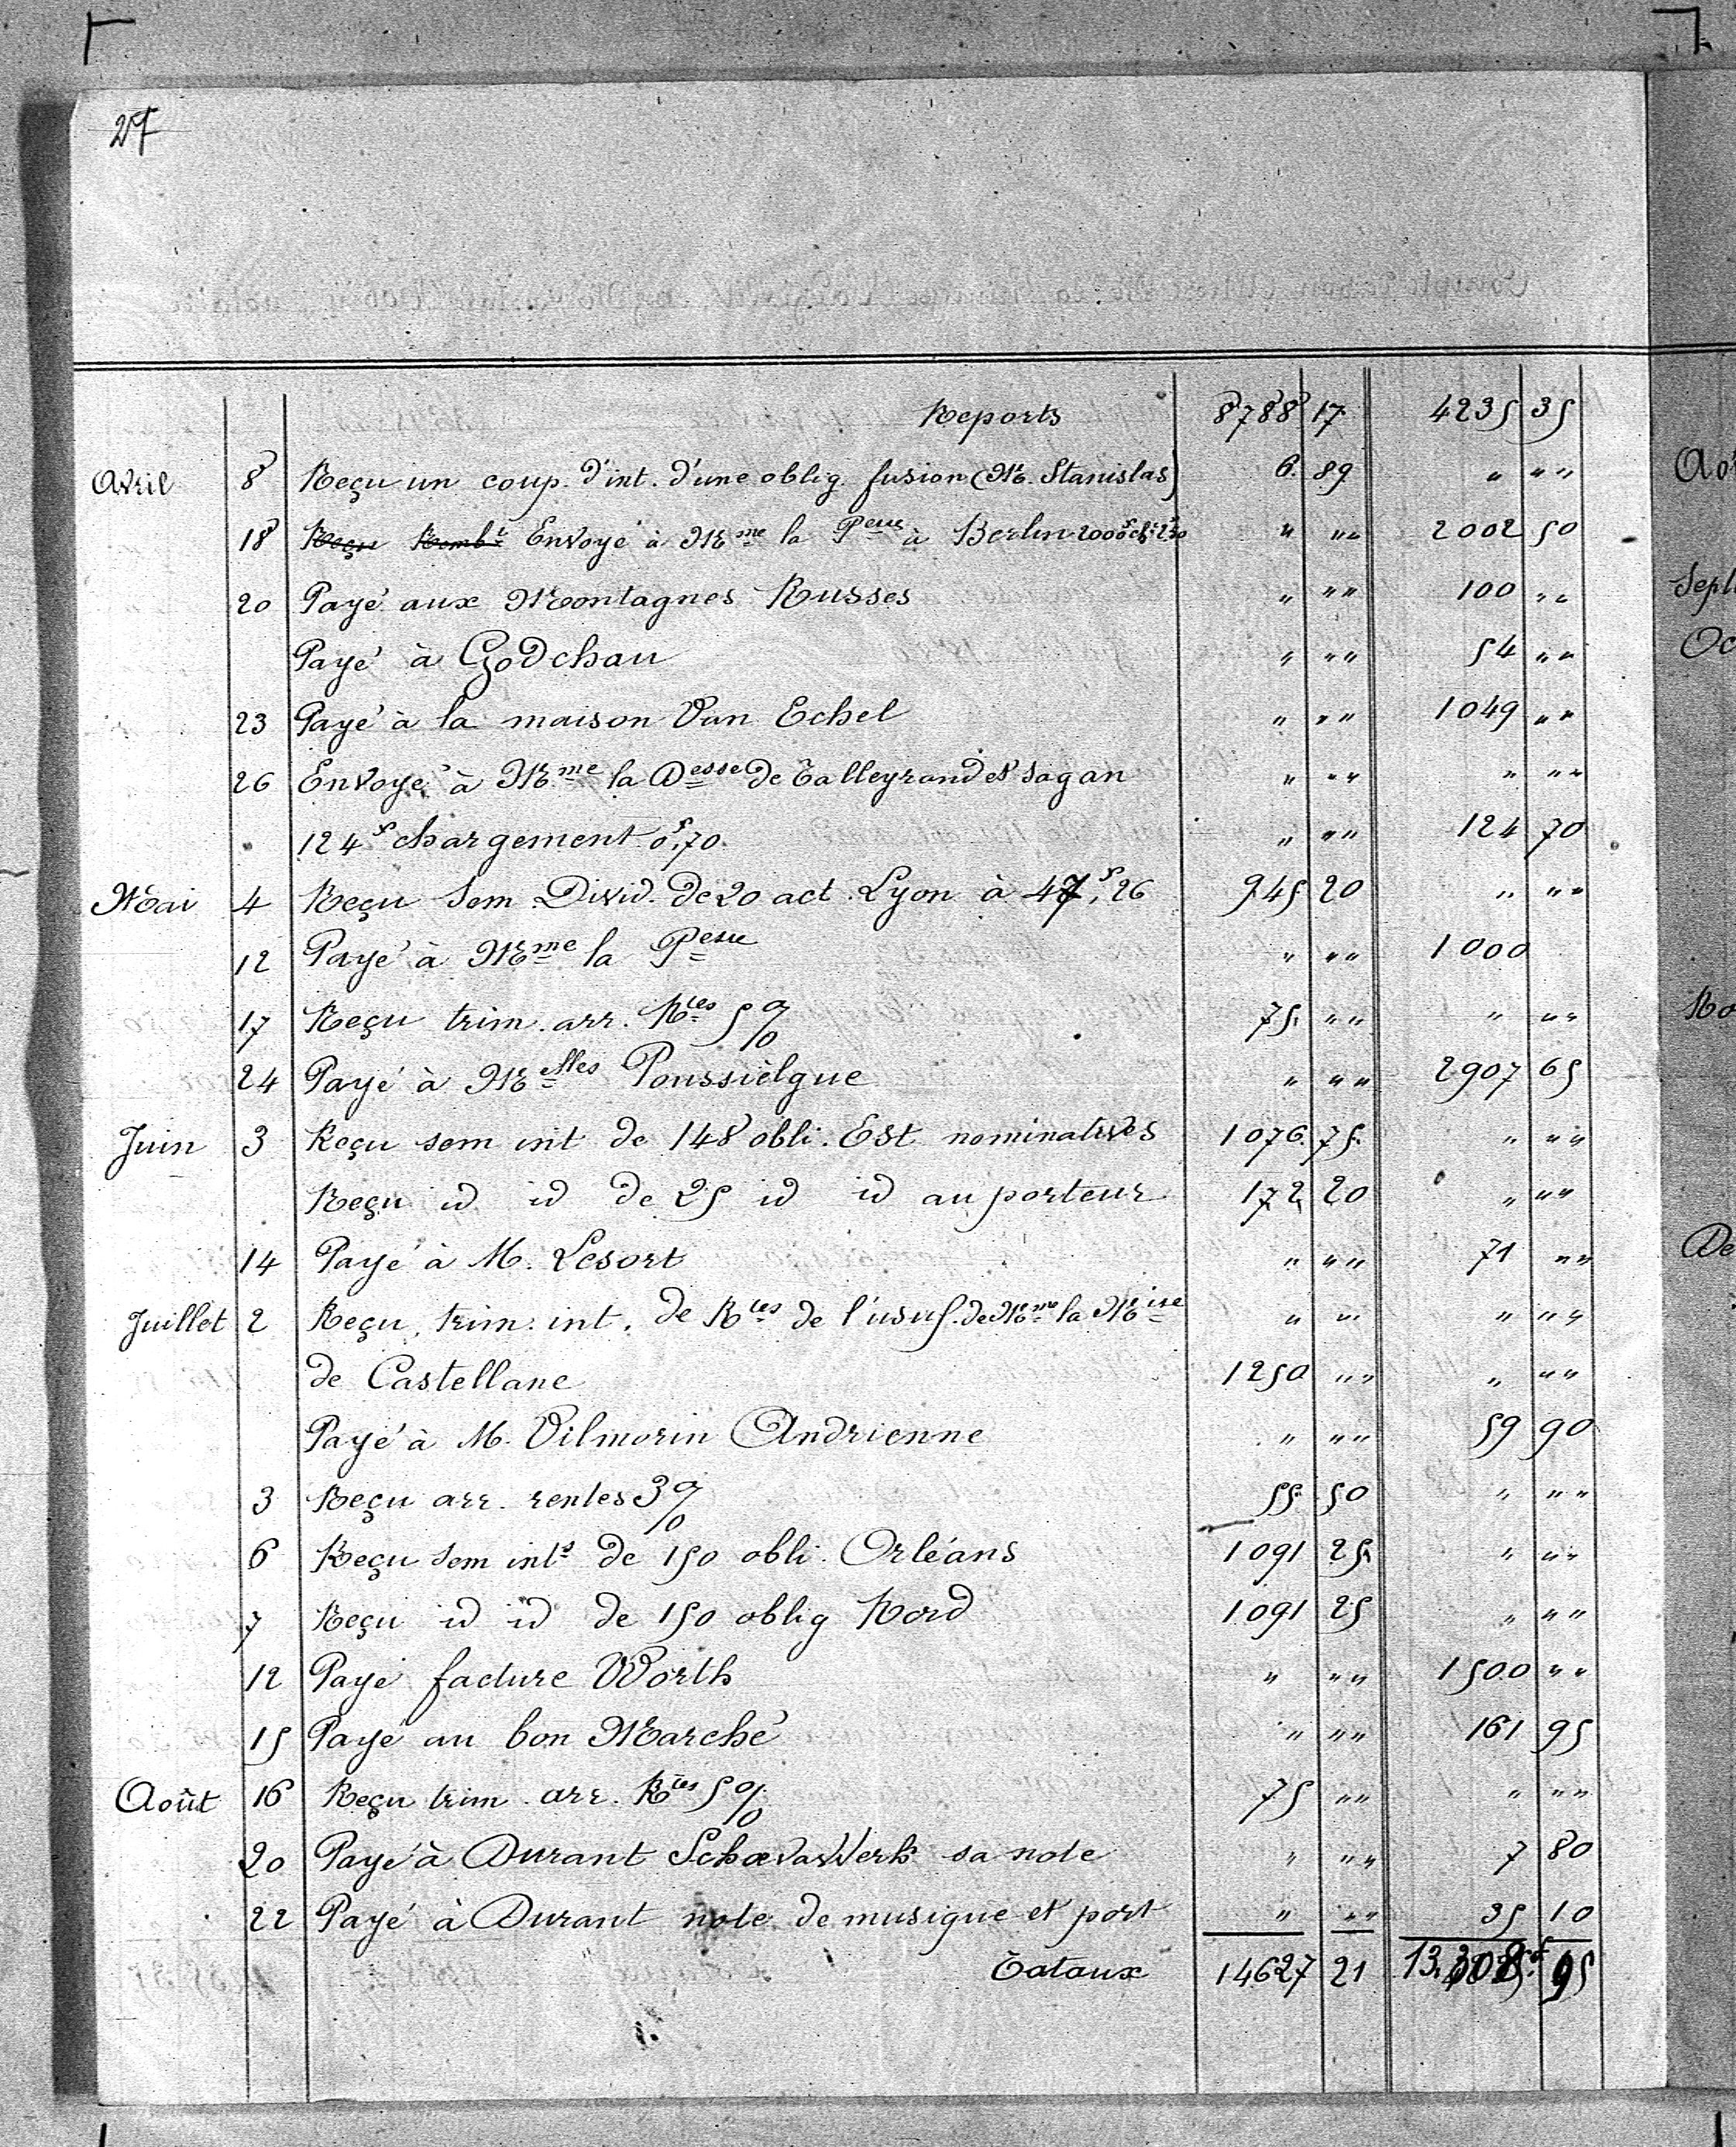 27
Reports 8788 17 4235 35
Avril 8 Reçu un coup. d'int. d'une oblig. fusion (M. Stanislas) 6. 89 " " "
18 Reçu Rembt Envoyé à Mme la Pesse à Berlin 2000f ch: 2f50 " " " 2002 50
20 Payé aux Montagnes Russes " " " 100 " "
Payé à Godchau " " " 54 " "
23 Payé à la maison Van Echel " " " 1049 " "
26 Envoyé à Mme la Desse de Talleyrand et Sagan " " " " " "
124f chargement 0f,70 " " " 124 70
Mai 4 Reçu Sem. Divid. de 20 act. Lyon à 47f,26 945 20 " " "
12 Payé à Mme la Pesse " " " 1000
17 Reçu trim. arr. Rtes 5% 75 " " " " "
24 Payé à Melles Poussièlgue " " " 2907 65
Juin 3 Reçu sem int de 148 obli. Est nominatives 1076. 75. " " "
Reçu id id de 25 id id au porteur 172 20 " " "
14 Payé à M. Lesort " " " 71 " "
Juillet 2 Reçu trim. int. de Rtes de l'usuf. de Mme la Mise " " " " " "
de Castellane 1250 " " " " "
Payé à M. Vilmorin Andrienne " " " 59 90
3 Reçu arr. rentes 3% 55. 50 " " "
6 Reçu Sem ints de 150 obli. Orléans 1091 25 " " "
7 Reçu id id de 150 oblig Nord 1091 25 " " "
12 Payé facture Worth " " " 1500 " "
15 Payé au bon Marché " " " 161 95
Août 16 Reçu trim. arr. Rtes 5% 75 " " " " "
20 Payé à Durant Schœvaverk sa note " " " 7 80
22 Payé à Durant note de musique et port " " " 35 10
Totaux 14627 21 13.308f 95
Sept
Oc
De